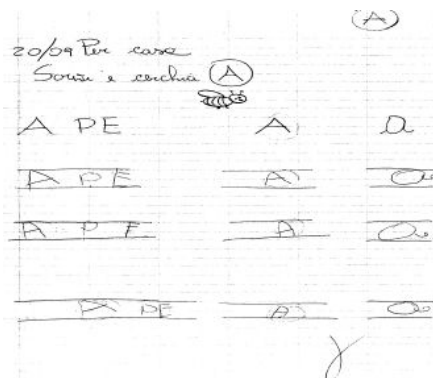 A
20/09 Per casa
Scrivi e cerchia A
A PE A a
A P E A a
A P E A a
A PE A a